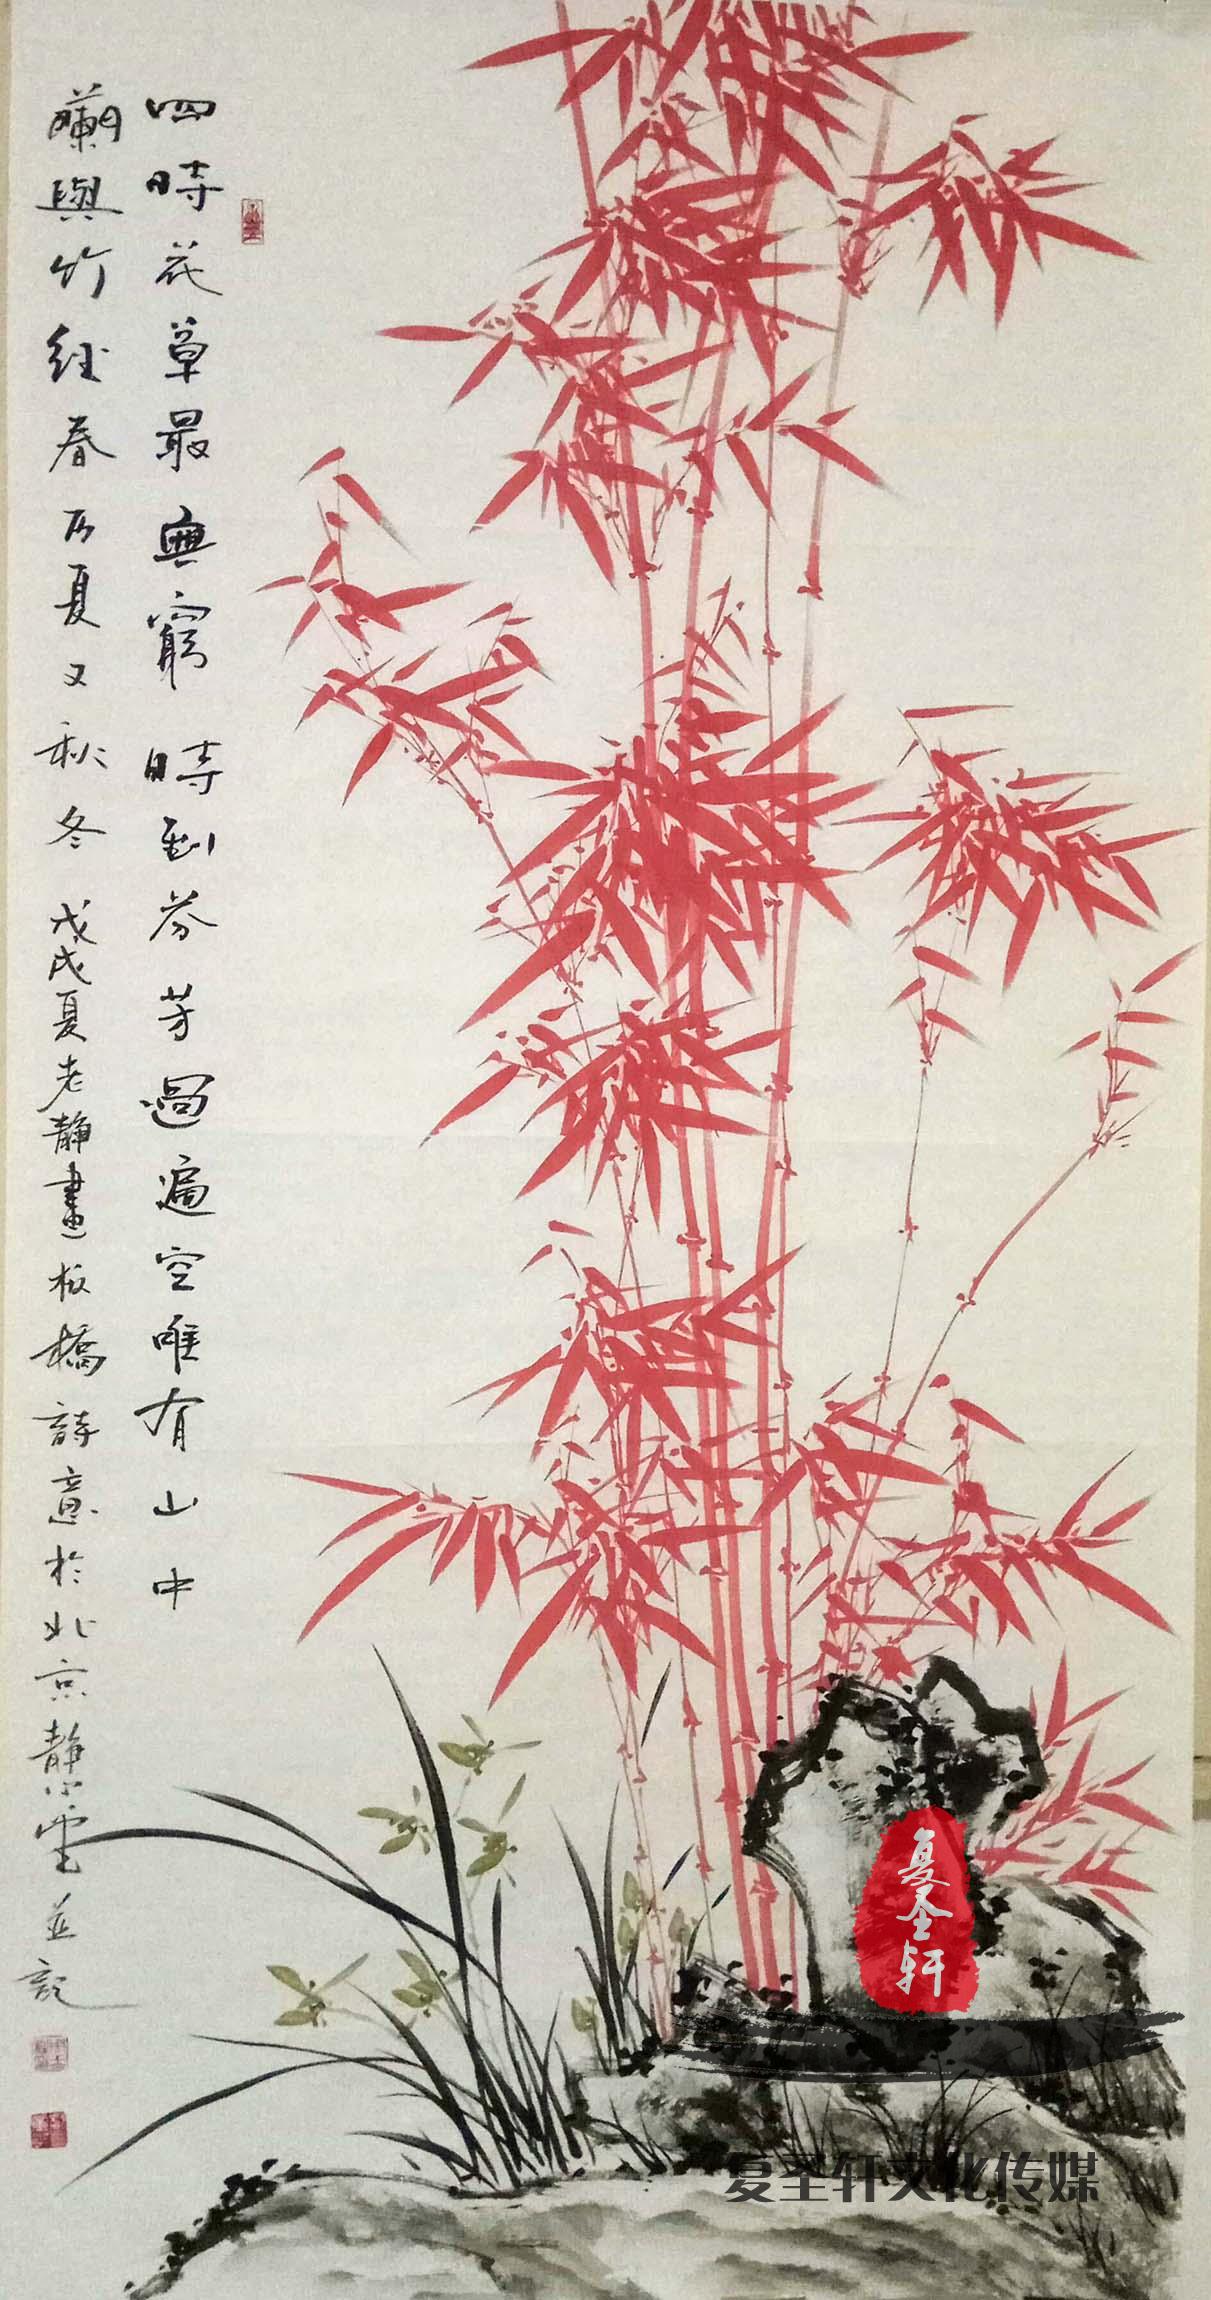 四時花草最無窮時到芬芳過遍空唯有山中
蘭與竹經春歷夏又秋冬 戊戌夏老靜畫板橋詩意於北京靜心堂並記
复圣轩
复圣轩文化传媒